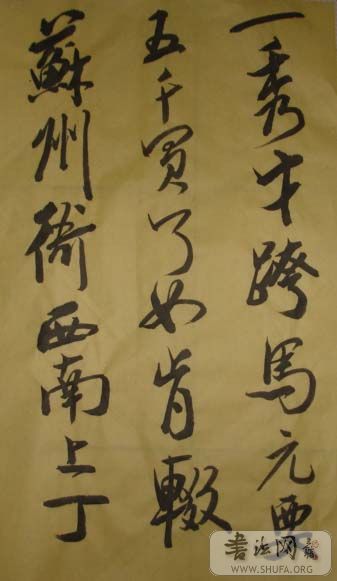 一秀才跨馬元要
五千買了如肯輟
蘇州衙西南上丁
書法网
WWW.SHUFA.ORG